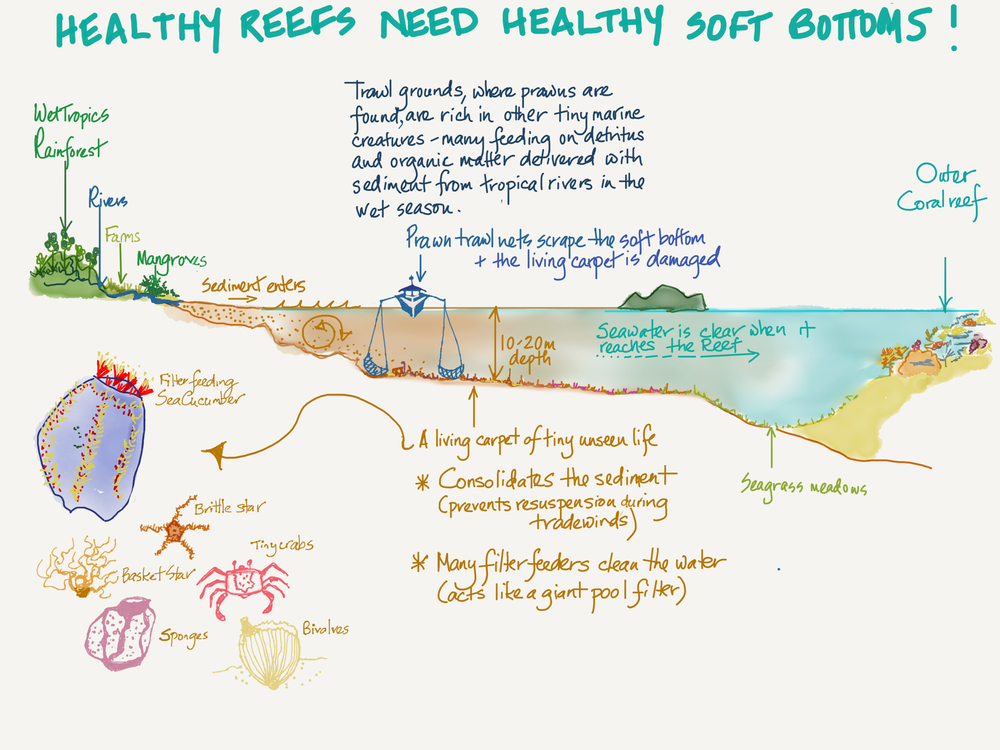 HEALTHY REEFS NEED HEALTHY SOFT BOTTOMS!
Trawl grounds, where prawns are
found, are rich in other tiny marine
creatures - many feeding on detritus
and organic matter delivered with
sediment from tropical rivers in the
wet season.
Wet Tropics
Rainforest
Rivers
Farms
Mangroves
Outer
Coral reef
Prawn trawl nets scrape the soft bottom
+ the living carpet is damaged
Sediment enters
10-20m
depth
Seawater is clear when it
reaches the Reef
Filter feeding
Sea Cucumber
A living carpet of tiny unseen life
* Consolidates the sediment
(prevents resuspension during
tradewinds)
* Many filter feeders clean the water
(acts like a giant pool filter)
Seagrass meadows
Brittle star
Tiny crabs
Basket Star
Sponges
Bivalves